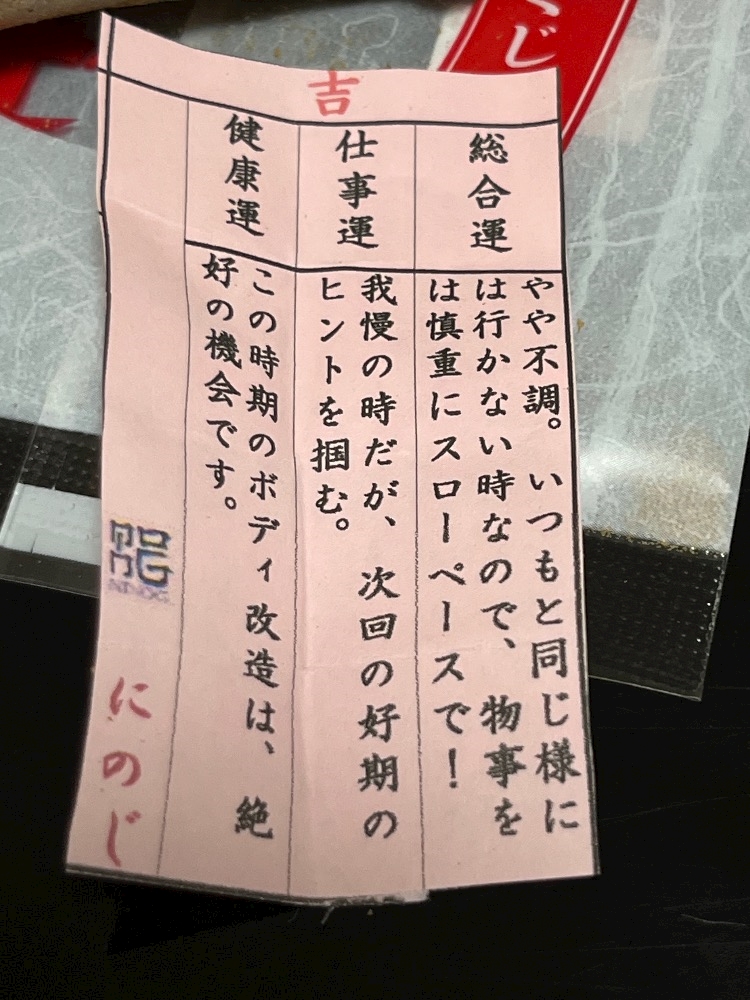 くじ
吉
総合運
やや不調。いつもと同じ様に
は行かない時なので、物事を
は慎重にスローペースで！
仕事運
我慢の時だが、次回の好期の
ヒントを掴む。
健康運
この時期のボディ改造は、絶
好の機会です。
にのじ